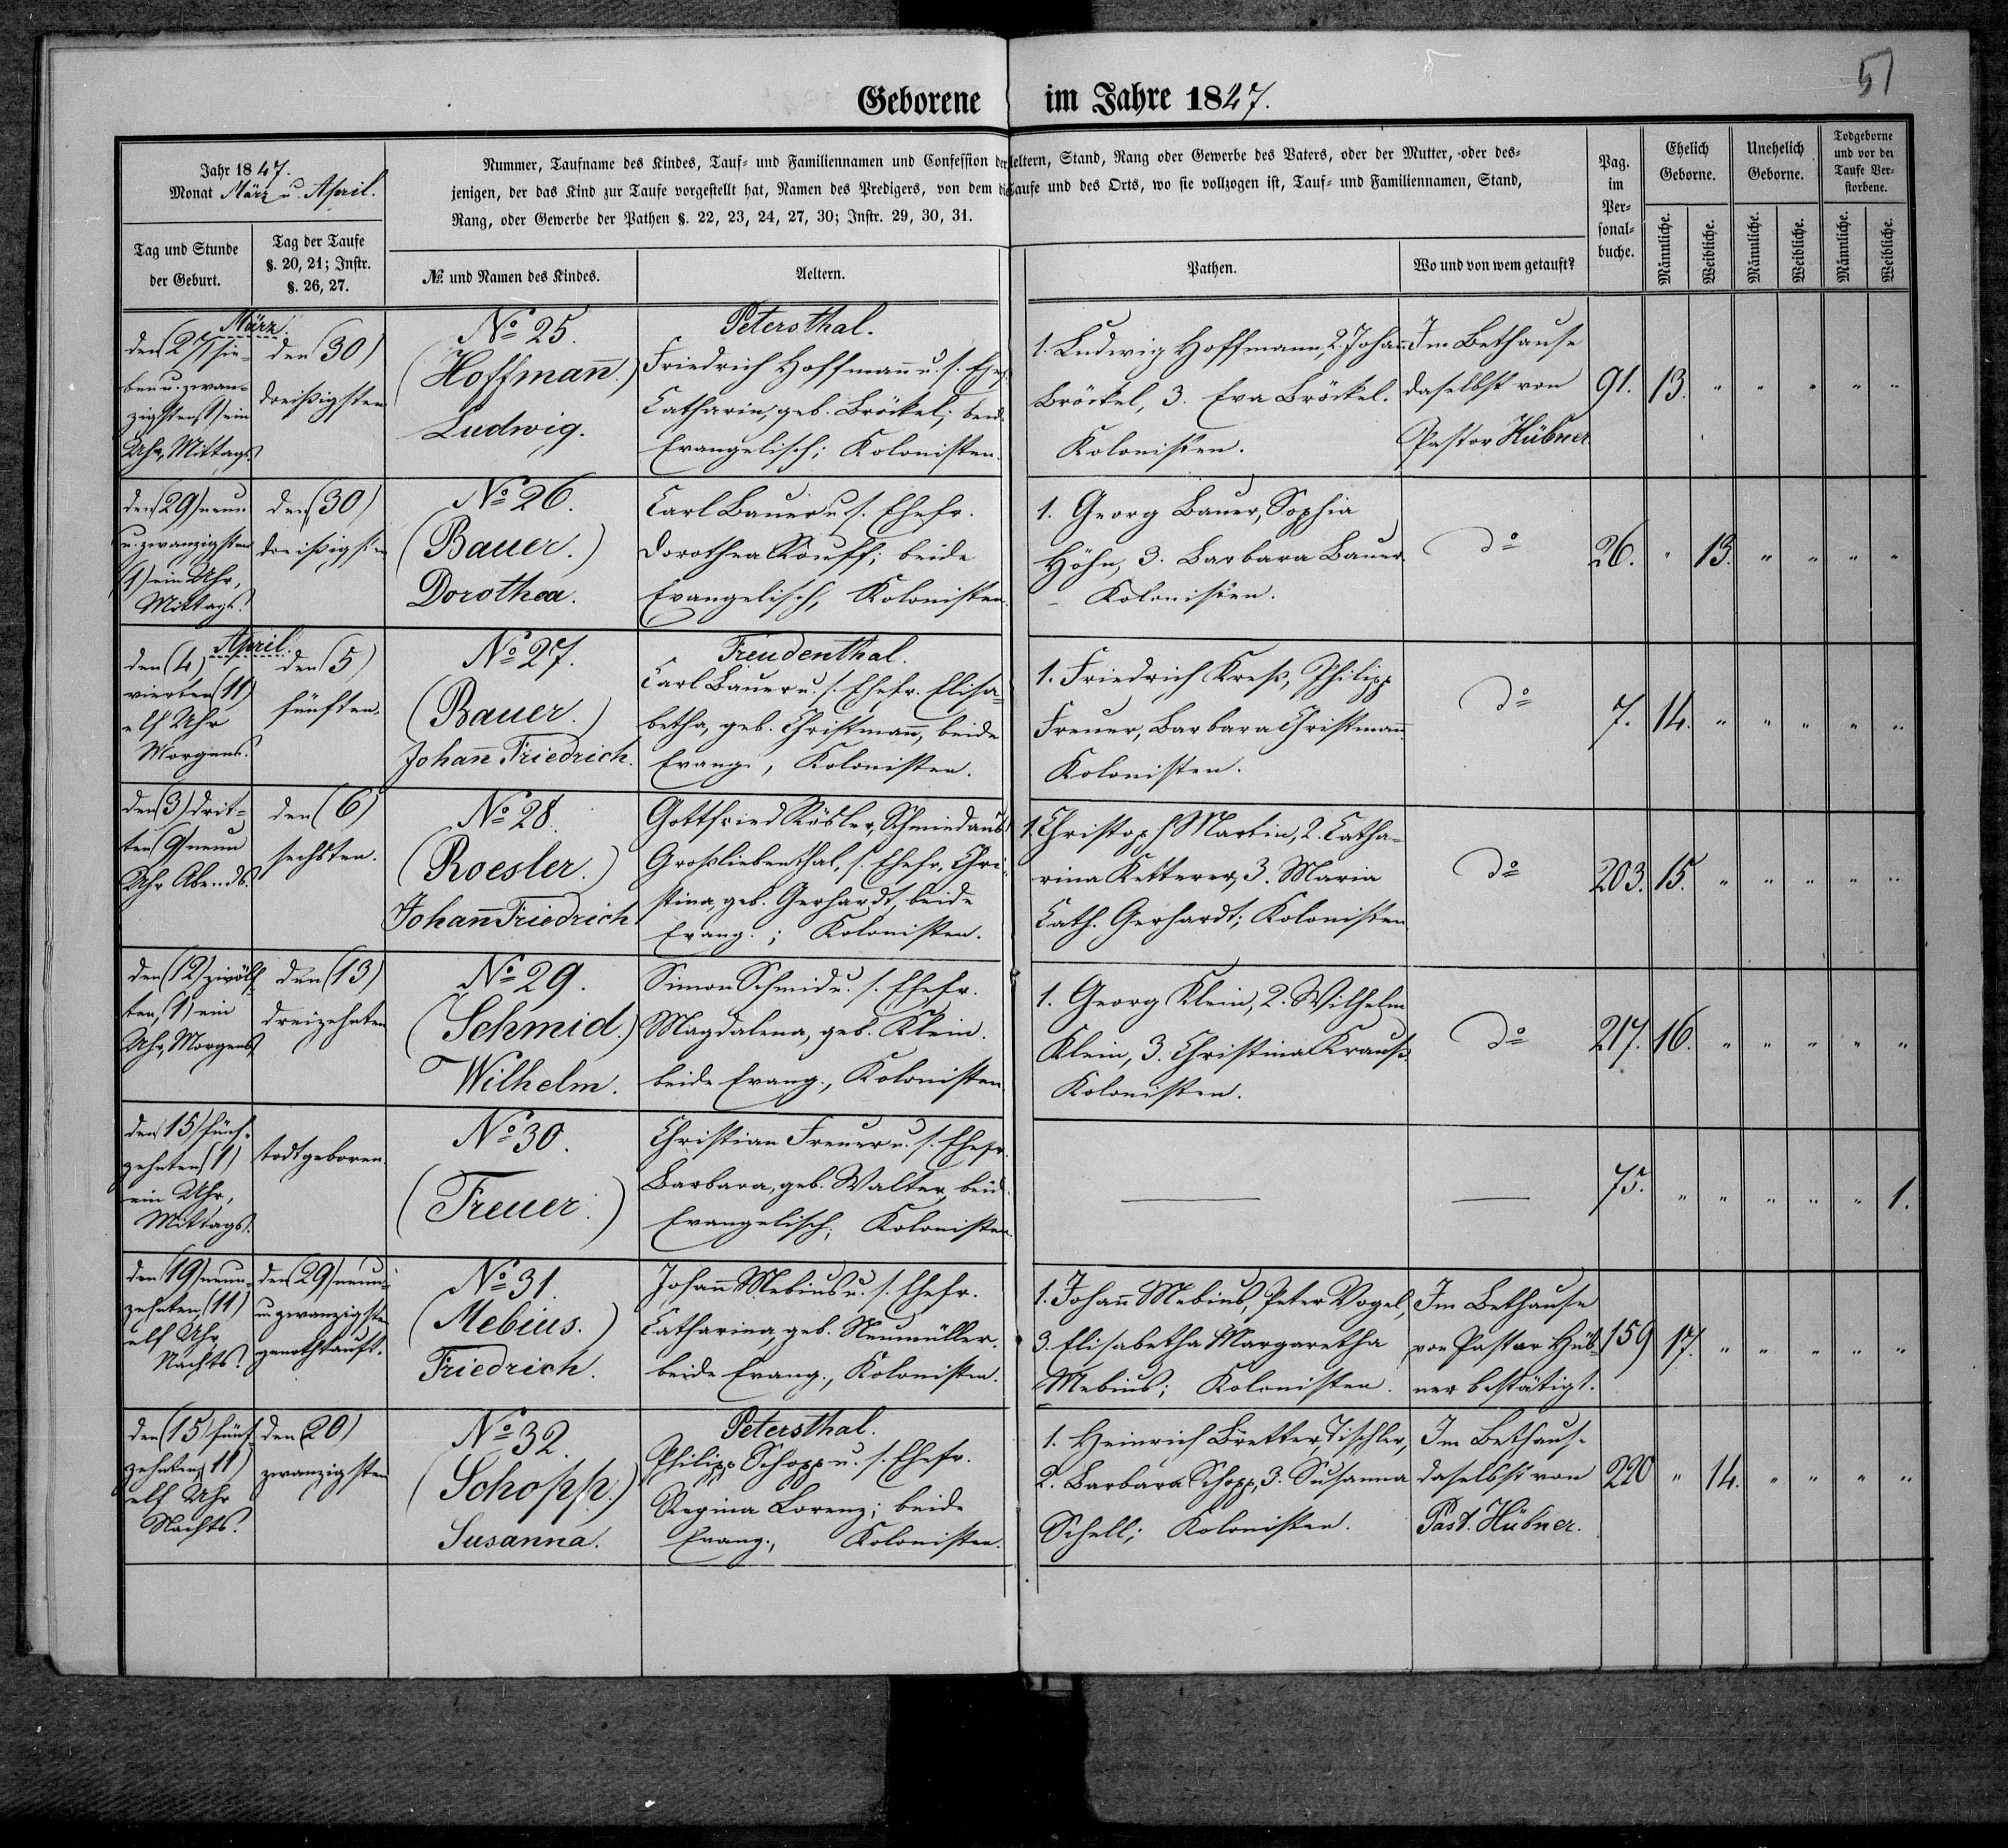 51
Geborene im Jahre 1847.
Jahr 1847.
Monat März u. April.
Nummer, Taufname des Kindes, Tauf- und Familiennamen und Confession der Aeltern, Stand, Rang oder Gewerbe des Vaters, oder der Mutter, oder des-
jenigen, der das Kind zur Taufe vorgestellt hat, Namen des Predigers, von dem die Taufe und des Orts, wo sie vollzogen ist, Tauf- und Familiennamen, Stand,
Rang, oder Gewerbe der Pathen §. 22, 23, 24, 27, 30; Instr. 29, 30, 31.
Pag.
im
Per-
sonal-
buche.
Ehelich
Geborne.
Unehelich
Geborne.
Todgeborne
und vor der
Taufe Ver-
storbene.
Tag und Stunde
der Geburt.
Tag der Taufe
§. 20, 21; Instr.
§. 26, 27.
№ und Namen des Kindes.
Aeltern.
Pathen.
Wo und von wem getauft?
Männliche.
Weibliche.
Männliche.
Weibliche.
Männliche.
Weibliche.
März.
den (27) sie-
ben u. zwan-
zigsten (1) ein
Uhr, Mittags.
den (30)
dreißigsten
No 25.
(Hoffmañ.)
Ludwig.
Petersthal.
Friedrich Hoffmañ u. s. Ehefr.
Catharin, geb. Bröckel; beid.
Evangelisch; Kolonisten.
1. Ludwig Hoffmann, 2. Johañ
Bröckel, 3. Eva Bröckel.
Kolonisten.
Im Bethause
daselbst von
Pastor Hübner
91. 13. " " " " "
den (29) neun
u. zwanzigsten
(1) ein Uhr,
Mittags.
den (30)
dreißigsten
No 26.
(Bauer.)
Dorothea.
Carl Bauer u. s. Ehefr.
Dorothea Kouff; beide
Evangelisch, Kolonisten.
1. Georg Bauer, Sophia
Höhn, 3. Barbara Bauer.
Kolonisten.
do
26. " 13. " " " "
April.
den (4)
vierten (11)
elf Uhr
Morgens.
den (5)
fünften.
No 27.
(Bauer.)
Johañ Friedrich.
Freudenthal.
Carl Bauer u. s. Ehefr. Elisa-
betha, geb. Christmañ, beide
Evang., Kolonisten.
1. Friedrich Kreß, Philipp
Freuer, Barbara Christmañ
Kolonisten.
do
7. 14. " " " " "
den (3) drit-
ten (9) neun
Uhr Abends.
den (6)
sechsten.
No 28.
(Roesler.)
Johañ Friedrich
Gottfried Rösler, Schmied aus
Großliebenthal, s. Ehefr. Chri-
stina, geb. Gerhardt, beide
Evang.; Kolonisten.
1. Christoph Martin, 2. Catha-
rina Ketterer, 3. Maria
Cath. Gerhardt; Kolonisten
do
203. 15. " " " " "
den (12) zwölf-
ten, (1) ein
Uhr, Morgens
den (13)
dreizehnten
No 29.
(Schmid.)
Wilhelm.
Simon Schmid u. s. Ehefr.
Magdalena, geb. Klein.
beide Evang., Kolonisten
1. Georg Klein, 2. Wilhelm
Klein, 3. Christina Krauß.
Kolonisten.
do
217. 16. " " " " "
den 15) fünf-
zehnten (1)
ein Uhr,
Mittags.
todtgeboren.
No 30.
(Freuer.)
Christian Freuer u. s. Ehefr.
Barbara, geb. Walter, beid.
Evangelisch; Kolonisten
75. " " " " " 1.
den (19) neun-
zehnten (11)
elf Uhr,
Nachts.
den (29) neun-
u. zwanzigsten
genothtauft.
No 31.
(Mebius.)
Friedrich.
Johañ Mebius u. s. Ehefr.
Catharina, geb. Neumüller.
beide Evang., Kolonisten.
1. Johañ Mebius, Peter Vogel,
3. Elisabetha Margaretha
Mebius; Kolonisten.
Im Bethause
von Pastor Hüb-
ner bestätigt.
159 17. " " " " "
den (15) fünf-
zehnten, 11)
elf Uhr
Nachts.
den (20)
zwanzigsten
No 32.
(Schopp.)
Susanna.
Petersthal.
Philipp Schopp u. s. Ehefr.
Regina Lorenz; beide
Evang., Kolonisten.
1. Heinrich Bretter, Tischler,
2. Barbara Schopp, 3. Susanna
Schell; Kolonisten.
Im Bethaus-
daselbst von
Past. Hübner.
220 " 14. " " " "